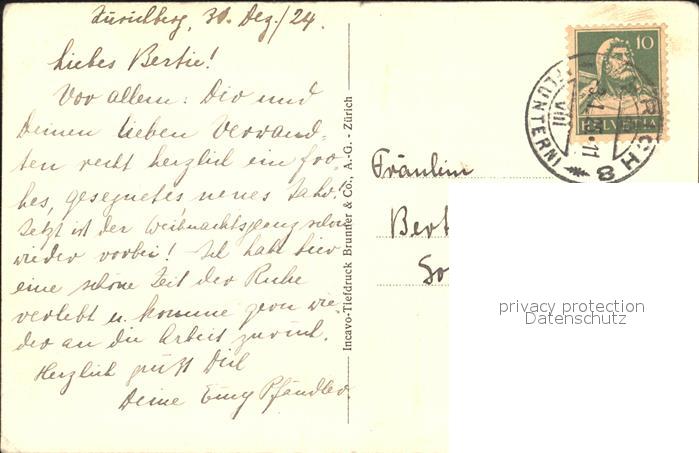 Zürichberg, 30. Dez./24.
Liebes Bertie!
Vor allem: Dir und
Deinen lieben Verwand-
ten recht herzlich ein fro-
hes, gesegnetes neues Jahr.
Jetzt ist der Weihnachtsglanz schon
wieder vorbei! Ich habe hier
eine schöne Zeit der Ruhe
verlebt u. komme gern wie-
der an die Arbeit zurück.
Herzlich grüsst Dich
Deine Emy Pfändler.
Incavo-Tiefdruck Brunner & Co., A.-G. - Zürich
10
HELVETIA
(FLUNTERN)
VIII
Fräulein
Bert
So
privacy protection
Datenschutz